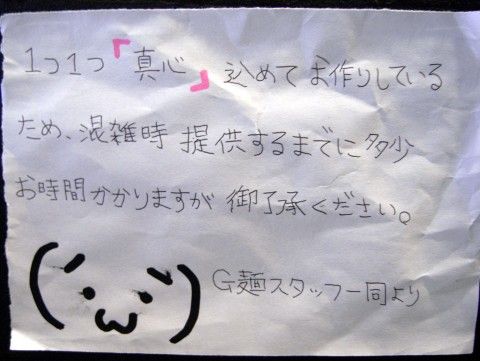 1つ1つ『真心』込めてお作りしている
ため、混雑時 提供するまでに多少
お時間かかりますが 御了承ください。
(´・ω・`)
G麺スタッフ一同より